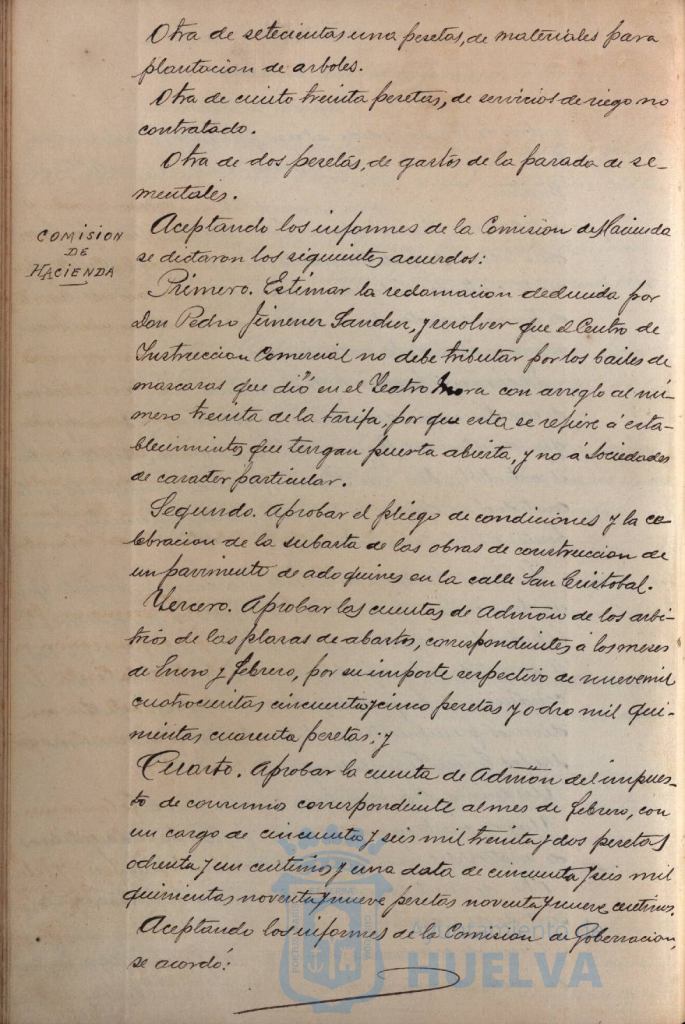 Otra de setecientas una pesetas, de materiales para
plantacion de arboles.
Otra de ciento treinta pesetas, de servicios de riego no
contratado.
Otra de dos pesetas, de gastos de la parada de se-
mentales.
COMISION
DE
HACIENDA
Aceptando los informes de la Comision de Hacienda
se dictaron los siguientes acuerdos:
Primero. Estimar la reclamacion deducida por
Don Pedro Jimenez Sanchez, y resolver que el Centro de
Instruccion Comercial no debe tributar por los bailes de
mascaras que dió en el Teatro Mora con arreglo al nú-
mero treinta de la tarifa, por que esta se refiere á esta-
blecimientos que tengan puerta abierta, y no á Sociedades
de caracter particular.
Segundo. Aprobar el pliego de condiciones y la ce-
lebracion de la subasta de las obras de construccion de
un pavimento de adoquines en la calle San Cristobal.
Tercero. Aprobar las cuentas de Admón de los arbi-
trios de las plazas de abastos, correspondientes á los meses
de Enero y febrero, por su importe respectivo de nueve mil
cuatrocientas cincuenta y cinco pesetas y ocho mil qui-
nientas cuarenta pesetas; y
Cuarto. Aprobar la cuenta de Admón del impues-
to de consumos correspondiente al mes de febrero, con
un cargo de cincuenta y seis mil treinta y dos pesetas
ochenta y un centimos y una data de cincuenta y seis mil
quinientas noventa y nueve pesetas noventa y nueve centimos.
Aceptando los informes de la Comision de Gobernacion,
se acordó:
HUELVA